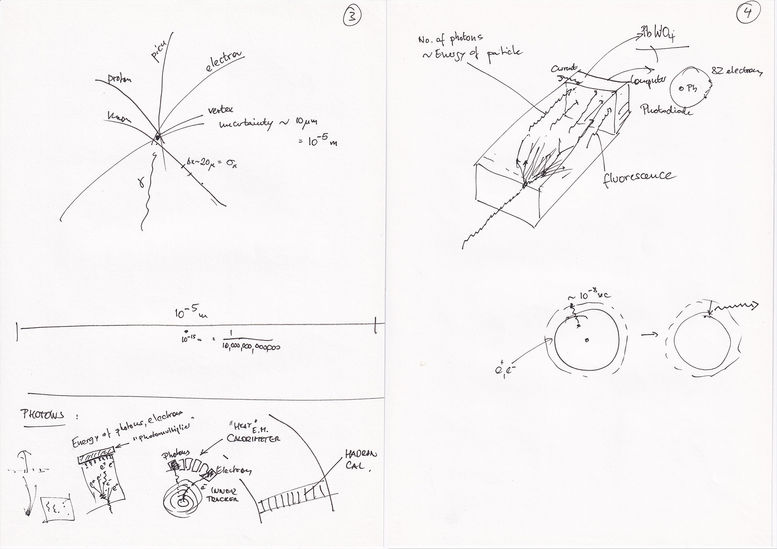 3
pion
electron
proton
kaon
vertex
uncertainty ~ 10 μm
= 10⁻⁵ m
= σₓ
γ
10⁻⁵ m
10⁻¹⁵ m = 1
10,000,000,000,000
PHOTONS :
Energy of photons, electron
"photomultiplier"
e⁻
"HEAVY" E.M.
CALORIMETER
Photons
Electrons
e⁻
INNER
TRACKER
HADRON
CAL.
4
No. of photons
~ Energy of particle
PbWO₄
Current
Computer
82 electrons
Pb
Photodiode
fluorescence
~ 10⁻⁸ sec
e⁺, e⁻